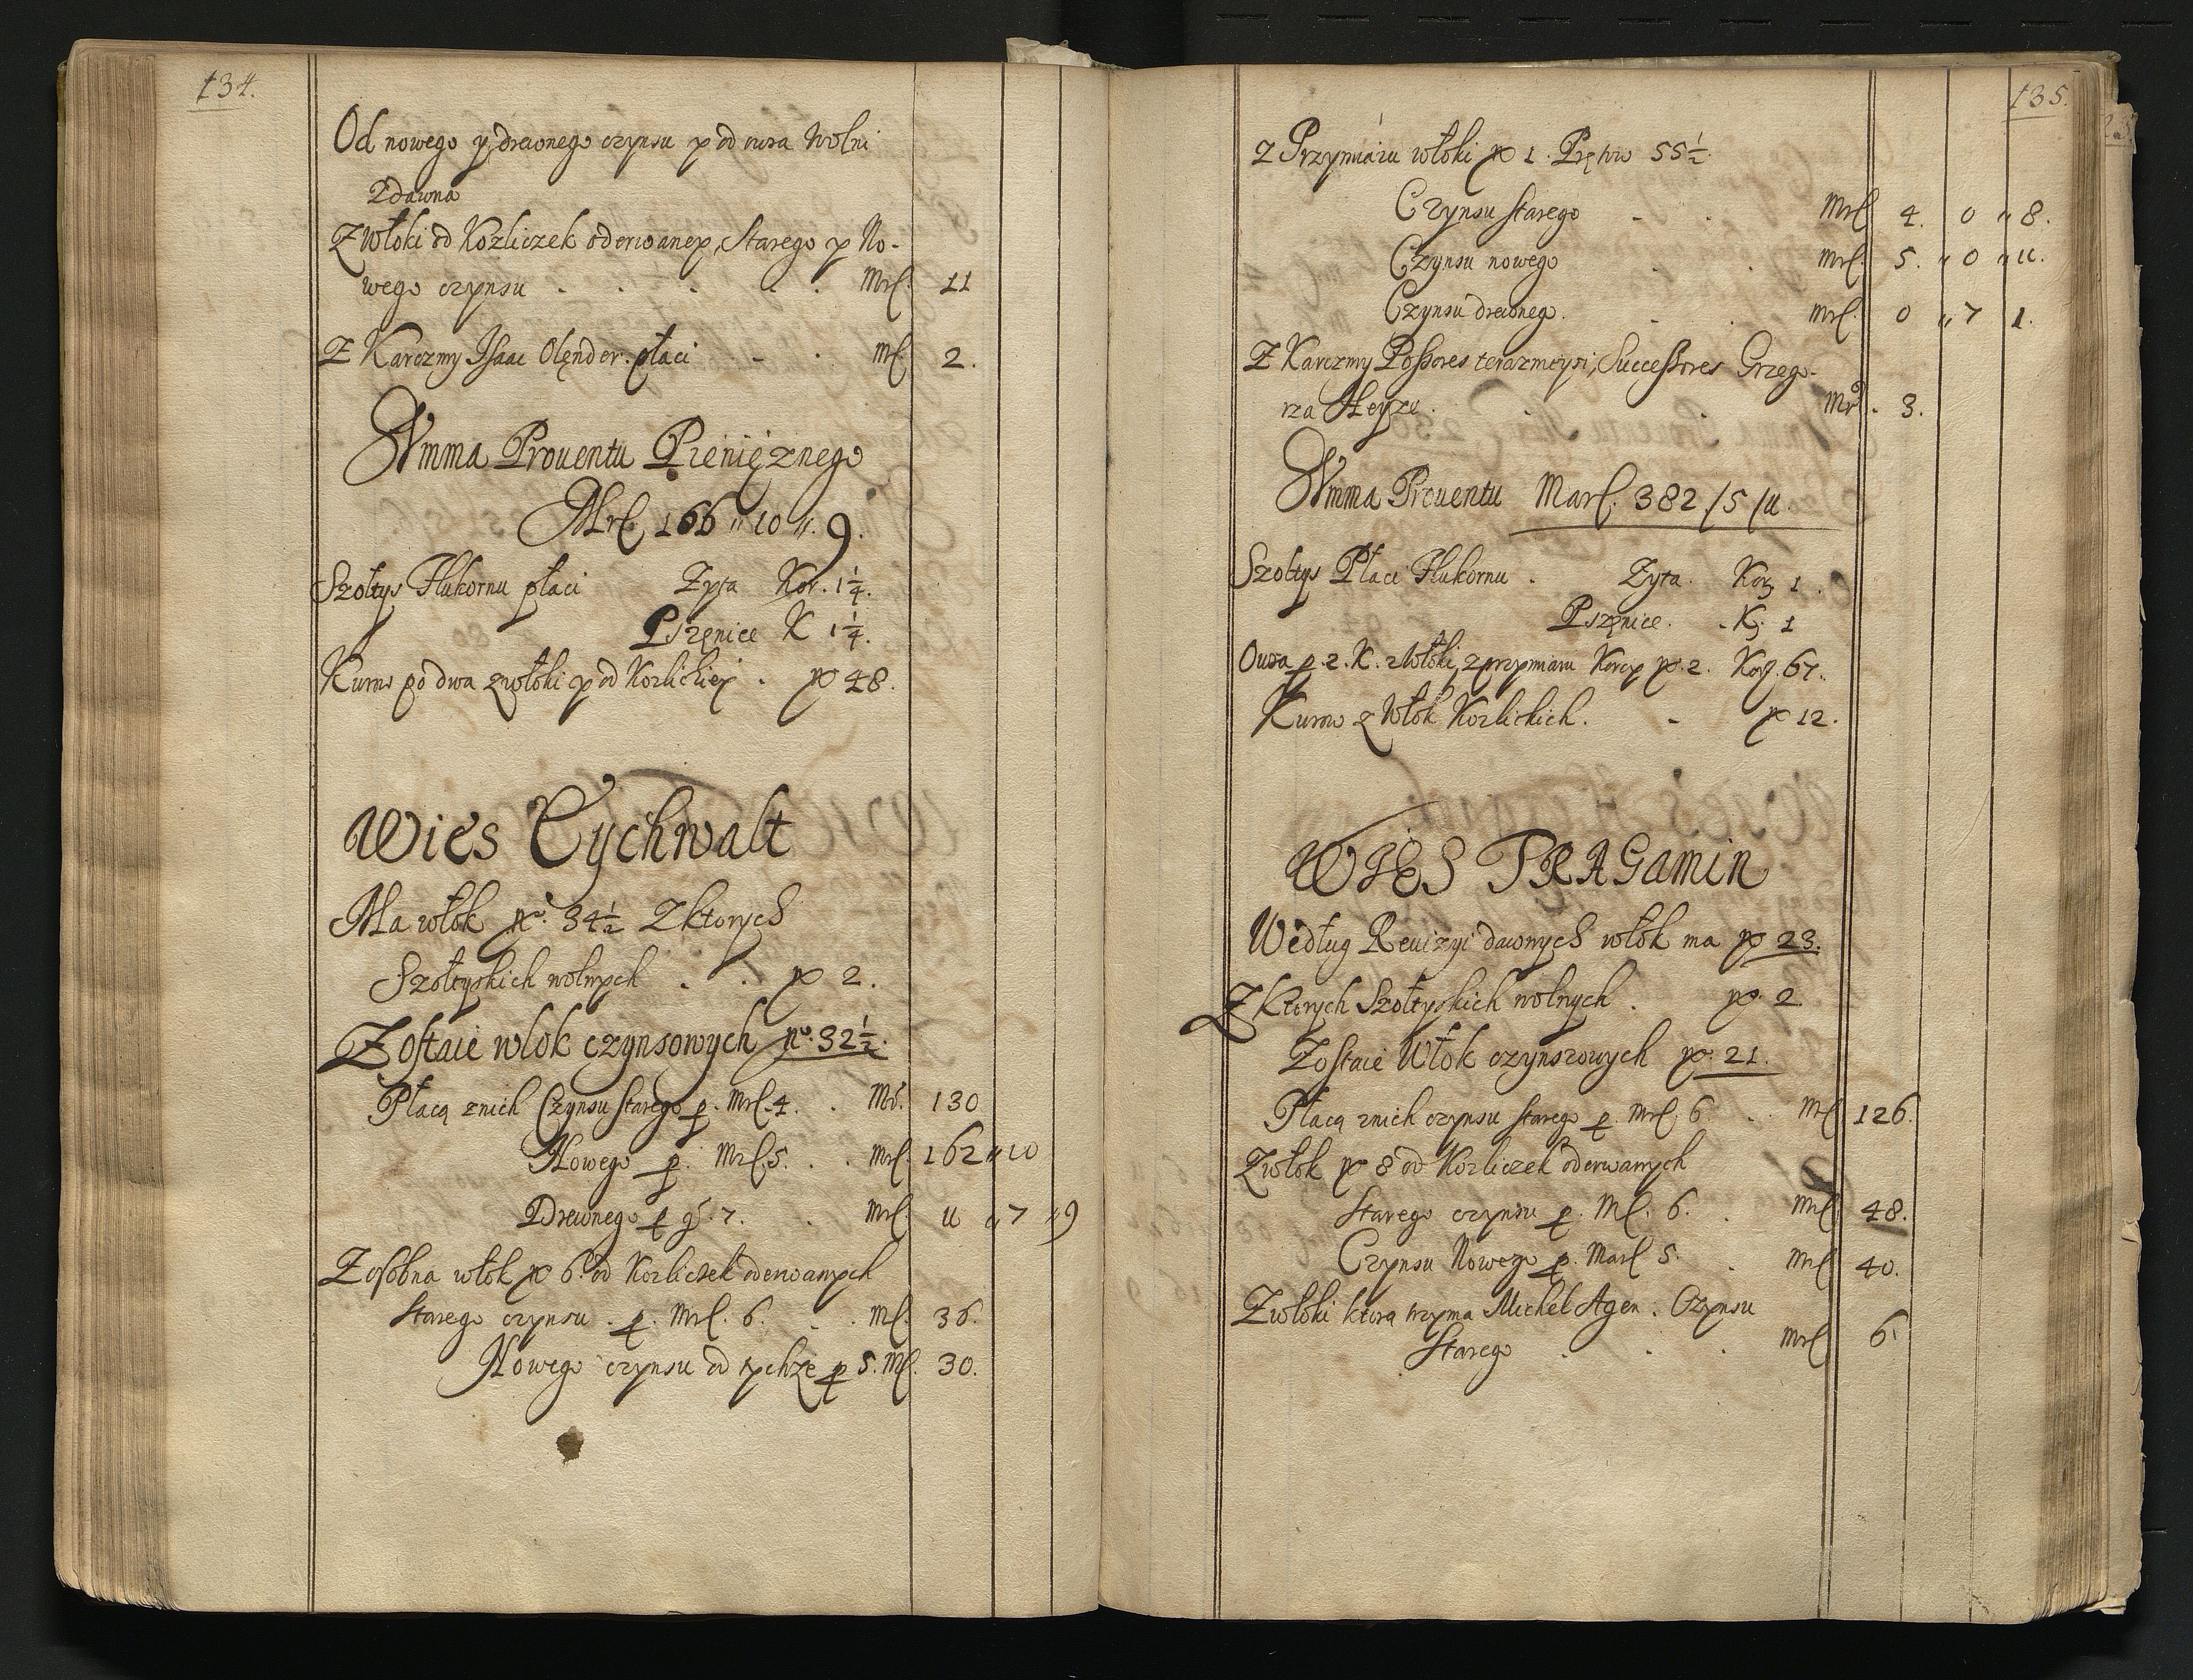 134.
Od nowego y drewnego czynsu y od owsa Wolni
zdawna
Z Włoki od Kozliczek oderwaney, Starego y No-
wego czynsu . . . . . Mrl. 11
Z Karczmy Isaac Olęnder. płaci - . Ml. 2.
Summa Prouentu Pieniężnego
Mrl. 166 „ 10 „ 9.
Szołtys Flukornu płaci Zyta Kor. 1¼.
Pszęnice K 1¼.
Kurow po dwa z włoki y od Kozlickiey . no 48.
Wies Tychwalt
Ma włok no. 34½ Z ktorych
Szołtyskich wolnych . . no 2.
Zostaie wlok czynsowych no. 32½.
Płacą znich Czynsu starego p. Mrl. 4. . Mr. 130
Nowego p. Mrl. 5. . . Mrl. 162 „ 10
Drewnego p gr. 7. . Mrl. 11 „ 7 „ 9
Z osobna włok no 6. od Kozliczek oderwanych
Starego czynsu . p. Mrl. 6. . . Ml. 36.
Nowego czynsu od tychże p 5. Ml. 30.
135.
Z Przymiaru włoki no 1. Prętow 55½.
Czynsu starego - . Mrl. 4. 0 „ 8.
Czynsu nowego . . Mrl. 5. „ 0 „ 11.
Czynsu drewneg. . . Mrl. 0 „ 7 1.
Z Karczmy Possores terazmeysi, Successores Grzego-
rza . . Mr. 3.
Summa Prouentu Marl. 382 / 5 / 11.
Szołtys Płaci Flukornu . Zyta. Kor 1.
Pszęnice. . K. 1
Owsa p. 2. K. z Włoki, z przymiaru Korcy no. 2. Kor. 67.
Kurow z Włok Kozlickich. - no 12.
WIES TRAGamin
Według Reuizyi dawnych włok ma no 23.
Z Ktorych Szołtyskich wolnych . no. 2
Zostaie Włok czynszowych no. 21.
Płacą znich czynsu starego p. Mrl. 6. . . Mrl 126.
Z włok no 8 od Kozliczek oderwanych
Starego czynsu p. Ml. 6. . Mrl. 48.
Czynsu Nowego p. Marl 5. . Mrl 40.
Z włoki ktorą trzyma Michel Agen. Czynsu
Starego . . . Mrl 6.